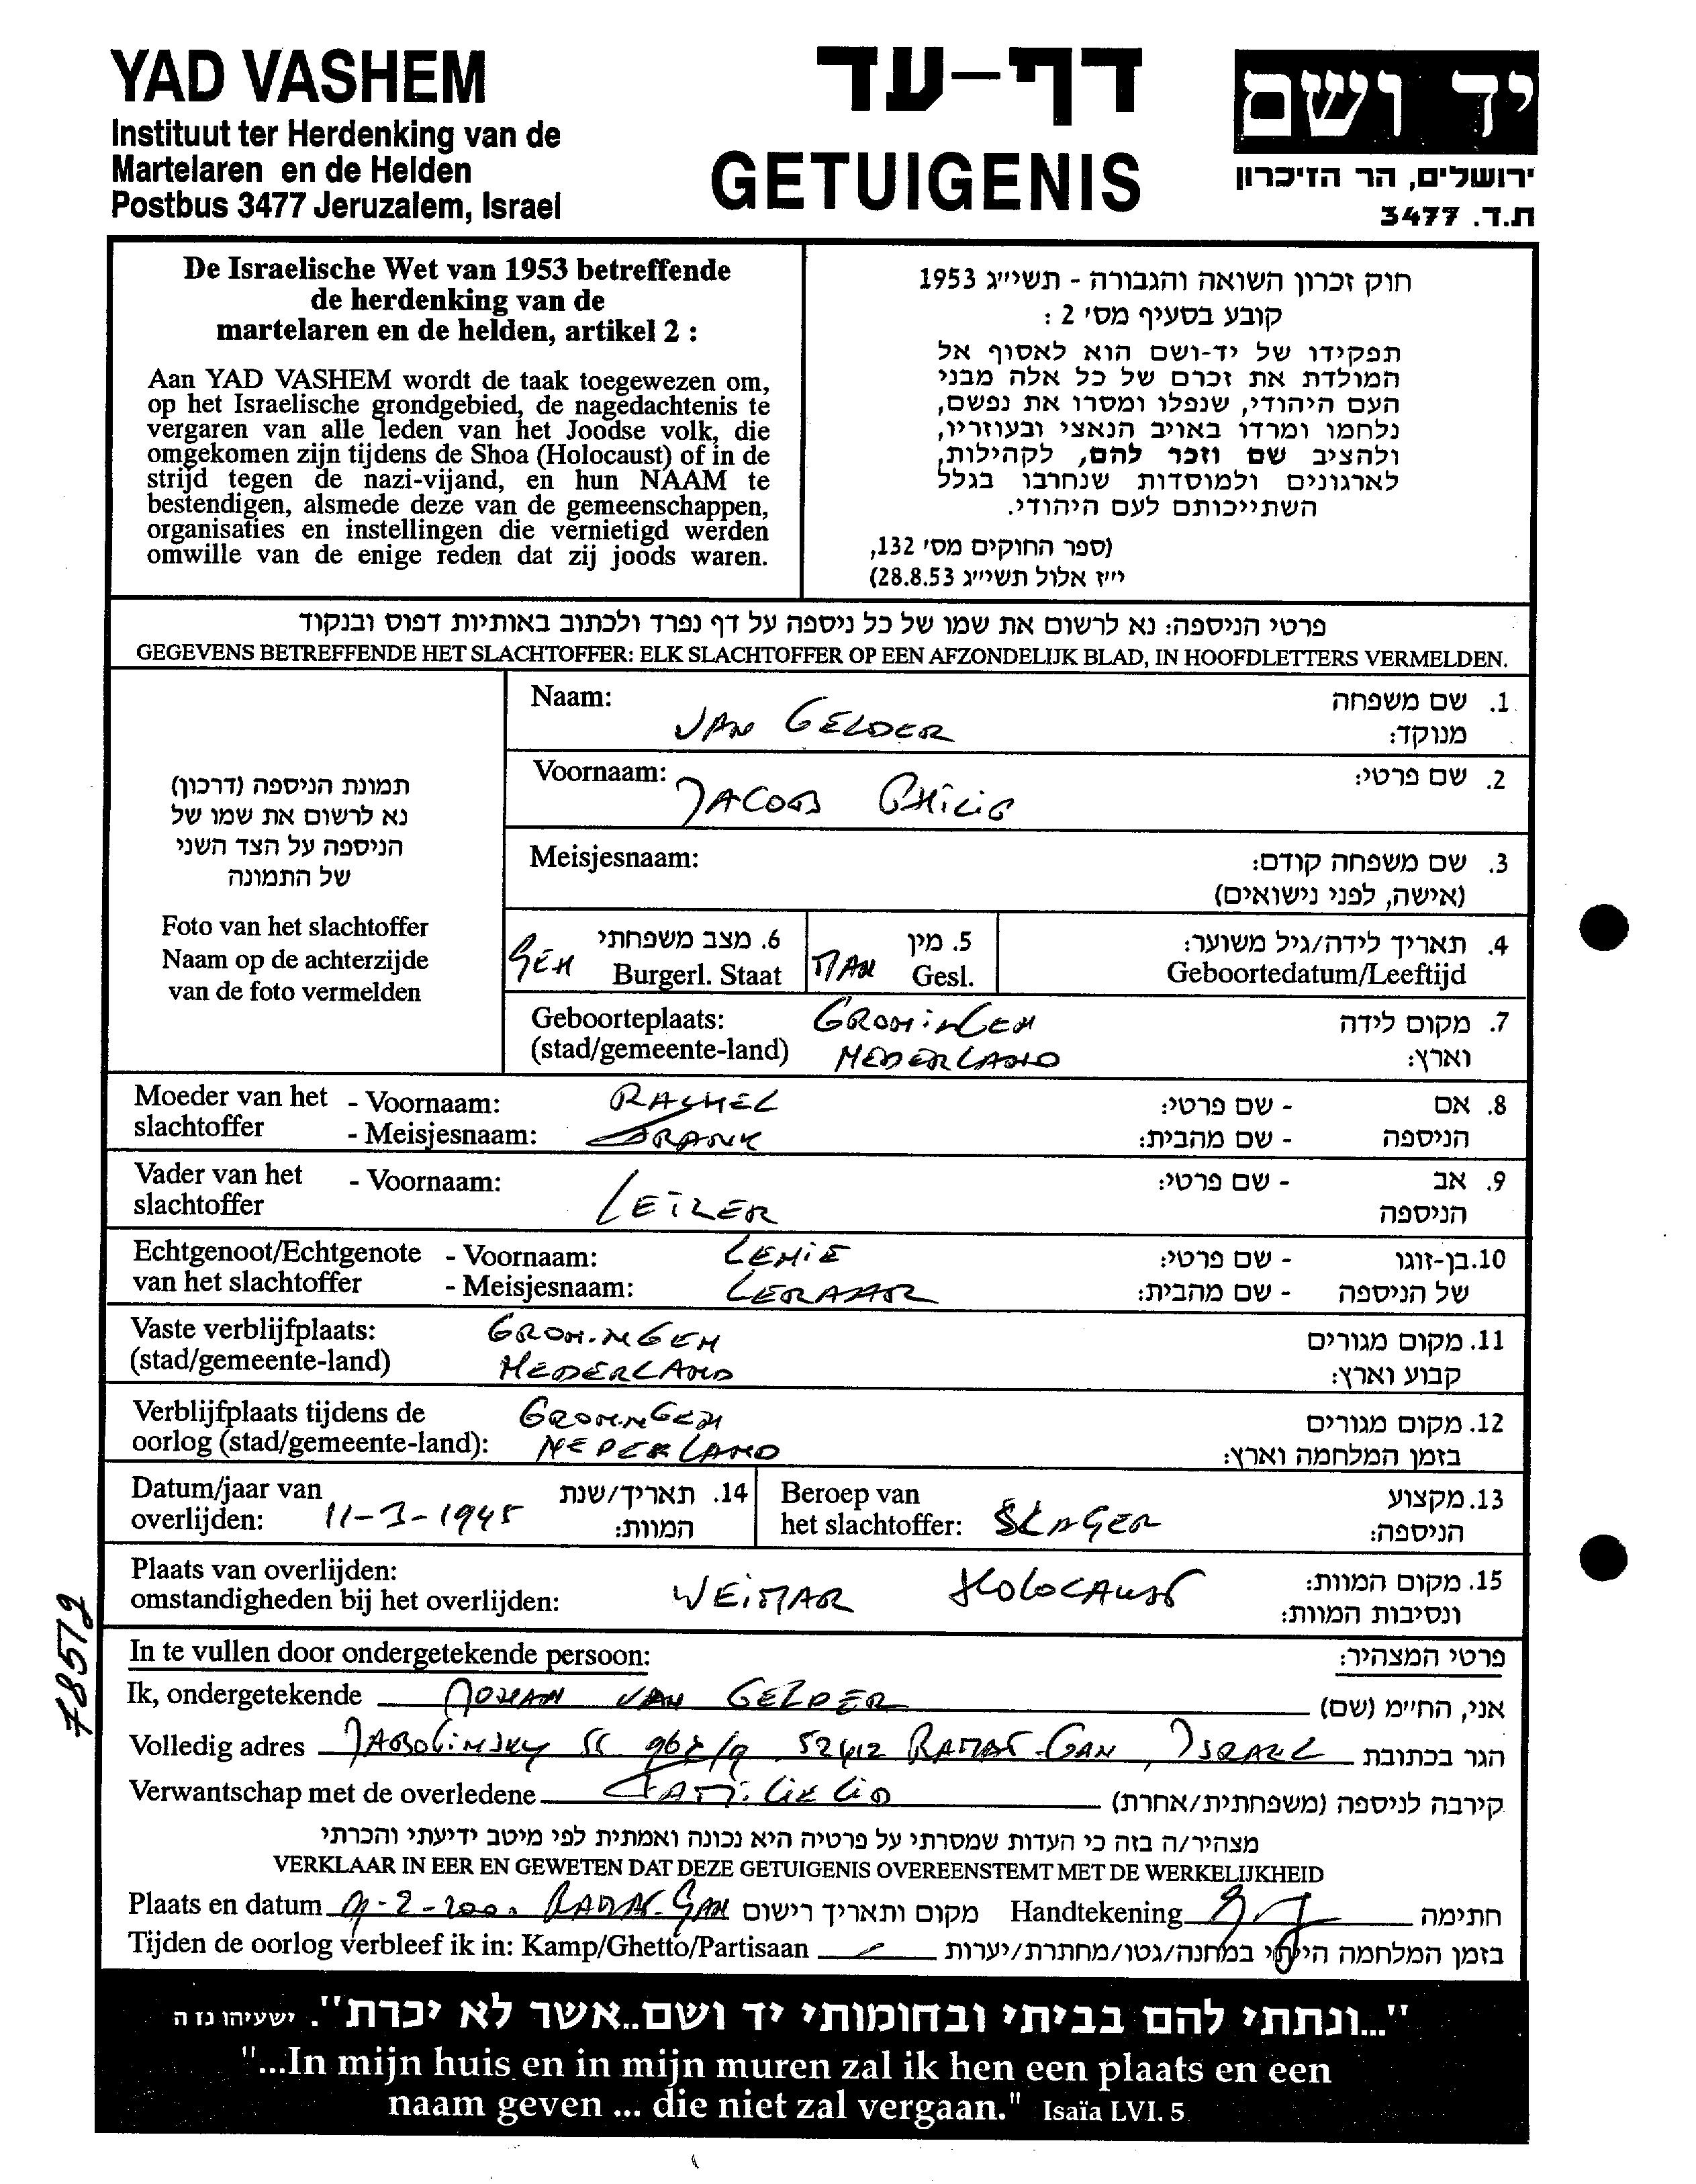 YAD VASHEM
Instituut ter Herdenking van de
Martelaren en de Helden
Postbus 3477 Jeruzalem, Israel
דף-עד
GETUIGENIS
יד ושם
ירושלים, הר הזיכרון
ת.ד. 3477
De Israelische Wet van 1953 betreffende
de herdenking van de
martelaren en de helden, artikel 2 :
Aan YAD VASHEM wordt de taak toegewezen om,
op het Israelische grondgebied, de nagedachtenis te
vergaren van alle leden van het Joodse volk, die
omgekomen zijn tijdens de Shoa (Holocaust) of in de
strijd tegen de nazi-vijand, en hun NAAM te
bestendigen, alsmede deze van de gemeenschappen,
organisaties en instellingen die vernietigd werden
omwille van de enige reden dat zij joods waren.
חוק זכרון השואה והגבורה - תשי״ג 1953
קובע בסעיף מס׳ 2 :
תפקידו של יד-ושם הוא לאסוף אל
המולדת את זכרם של כל אלה מבני
העם היהודי, שנפלו ומסרו את נפשם,
נלחמו ומרדו באויב הנאצי ובעוזריו,
ולהציב שם וזכר להם, לקהילות,
לארגונים ולמוסדות שנחרבו בגלל
השתייכותם לעם היהודי.
(ספר החוקים מס׳ 132,
י״ז אלול תשי״ג 28.8.53)
פרטי הניספה: נא לרשום את שמו של כל ניספה על דף נפרד ולכתוב באותיות דפוס ובנקוד
GEGEVENS BETREFFENDE HET SLACHTOFFER: ELK SLACHTOFFER OP EEN AFZONDELIJK BLAD, IN HOOFDLETTERS VERMELDEN.
תמונת הניספה (דרכון)
נא לרשום את שמו של
הניספה על הצד השני
של התמונה
Foto van het slachtoffer
Naam op de achterzijde
van de foto vermelden
Naam: VAN GELDER 1. שם משפחה
מנוקד:
Voornaam: JACOB PHILIP 2. שם פרטי:
Meisjesnaam: 3. שם משפחה קודם:
(אישה, לפני נישואים)
6. מצב משפחתי 5. מין 4. תאריך לידה/גיל משוער:
GEH Burgerl. Staat MAN Gesl. Geboortedatum/Leeftijd
Geboorteplaats: GRONINGEN 7. מקום לידה
(stad/gemeente-land) NEDERLAND וארץ:
Moeder van het - Voornaam: RACHEL 8. אם - שם פרטי:
slachtoffer - Meisjesnaam: FRANK הניספה - שם מהבית:
Vader van het - Voornaam: LEIZER 9. אב - שם פרטי:
slachtoffer הניספה
Echtgenoot/Echtgenote - Voornaam: LENIE 10. בן-זוגו - שם פרטי:
van het slachtoffer - Meisjesnaam: LERAAR של הניספה - שם מהבית:
Vaste verblijfplaats: GRONINGEN 11. מקום מגורים
(stad/gemeente-land) NEDERLAND קבוע וארץ:
Verblijfplaats tijdens de GRONINGEN 12. מקום מגורים
oorlog (stad/gemeente-land): NEDERLAND בזמן המלחמה וארץ:
Datum/jaar van 14. תאריך/שנת Beroep van 13. מקצוע
overlijden: 11-3-1945 המוות: het slachtoffer: SLAGER הניספה:
Plaats van overlijden: 15. מקום המוות:
omstandigheden bij het overlijden: WEIMAR HOLOCAUST ונסיבות המוות:
78572
In te vullen door ondergetekende persoon: פרטי המצהיר:
Ik, ondergetekende VAN GELDER אני, החי״מ (שם)
Volledig adres JABOTINSKY ST 96 RAMAT-GAN, ISRAEL הגר בכתובת
Verwantschap met de overledene FAMILIELID קירבה לניספה (משפחתית/אחרת)
מצהיר/ה בזה כי העדות שמסרתי על פרטיה היא נכונה ואמתית לפי מיטב ידיעתי והכרתי
VERKLAAR IN EER EN GEWETEN DAT DEZE GETUIGENIS OVEREENSTEMT MET DE WERKELIJKHEID
Plaats en datum 9-2-2000 RAMAT-GAN מקום ותאריך רישום Handtekening חתימה
Tijden de oorlog verbleef ik in: Kamp/Ghetto/Partisaan בזמן המלחמה הייתי במחנה/גטו/מחתרת/יערות
"...ונתתי להם בביתי ובחומותי יד ושם..אשר לא יכרת". ישעיהו נז ה
"...In mijn huis en in mijn muren zal ik hen een plaats en een
naam geven ... die niet zal vergaan." Isaïa LVI. 5